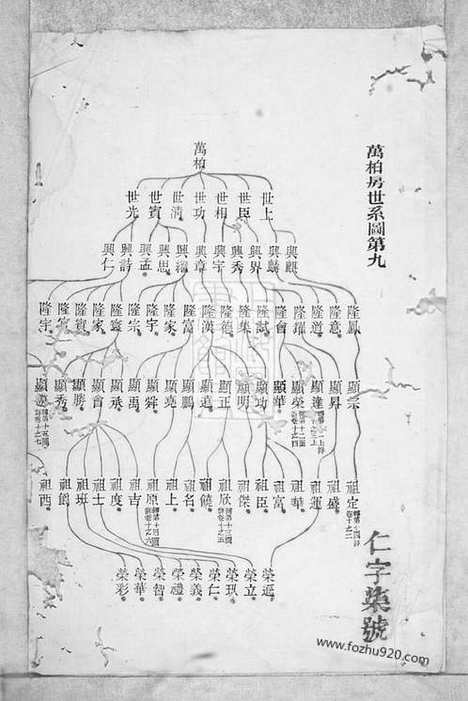 萬柏房世系圖第九
萬柏
世上
世臣
世相
世功
世清
世賓
世光
興麒
興麟
興界
興秀
興宇
興章
興耀
興思
興孟
興詩
興仁
隆鳳
隆意
隆道
隆耀
隆會
隆試
隆集
隆德
隆漢
隆富
隆家
隆宇
隆宗
隆寰
隆家
隆賓
隆宇
顯宗
顯昇
顯達
顯榮
顯華
顯功
顯明
顯正
顯遠
顯鵬
顯堯
顯舜
顯禹
顯承
顯會
顯勝
顯秀
祖定
祖盛
祖運
祖華
祖富
祖臣
祖傑
祖欣
祖饒
祖名
祖上
祖原
祖吉
祖度
祖士
祖班
祖爵
祖西
榮延
榮立
榮玖
榮仁
榮義
榮禮
榮智
榮華
榮彩
仁字柒號
www.fozhu920.com